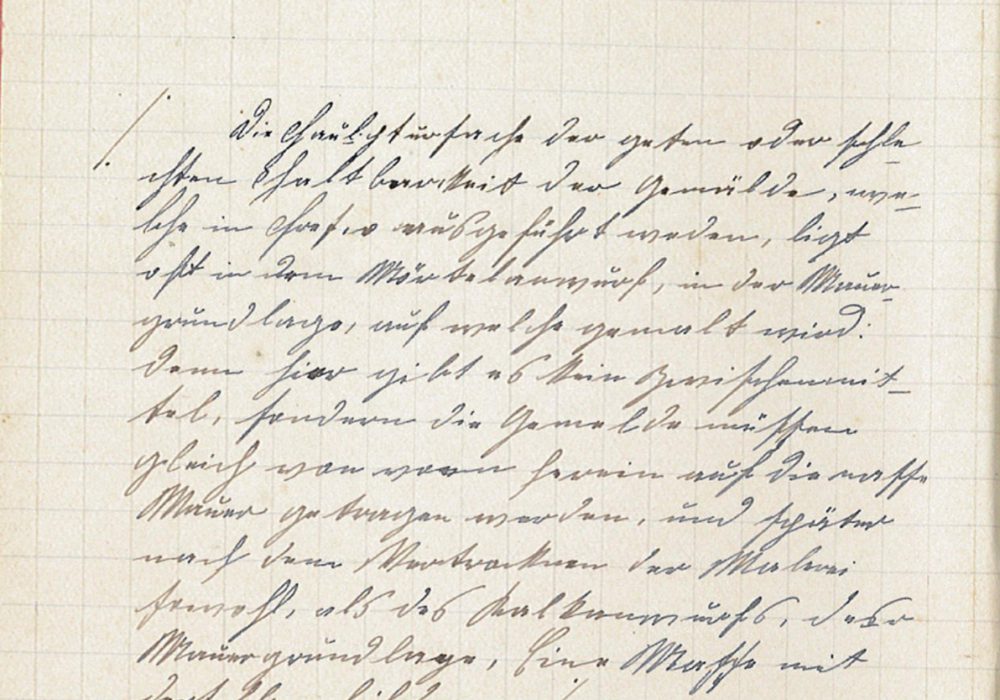 Die Hauptursache der guten oder schle
chten Haltbarkeit der Gemälde, we-
lche in Fresco ausgeführt weden, ligt
oft in dem Mörtelanwurf, in der Mauer-
grundlage, auf welche gemalt wird:
denn hier gibt es kein Zwischenmit-
tel, sondern die Gemelde müssen
gleich von vorn herein auf die nasse
Mauer getragen werden, und später
nach dem Vertrocknen der Malerei
sowohl, als des Kalkanwurfs, der
Mauergrundlage, Eine Masse mit